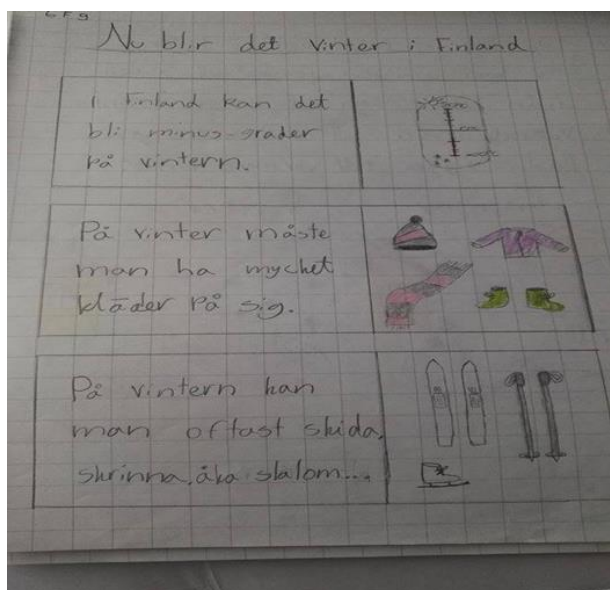 Nu blir det vinter i Finland
I Finland kan det
bli minus-grader
på vintern.
På vinter måste
man ha mychet
kläder på sig.
På vintern kan
man oftast skida,
skrinna, åka slalom...